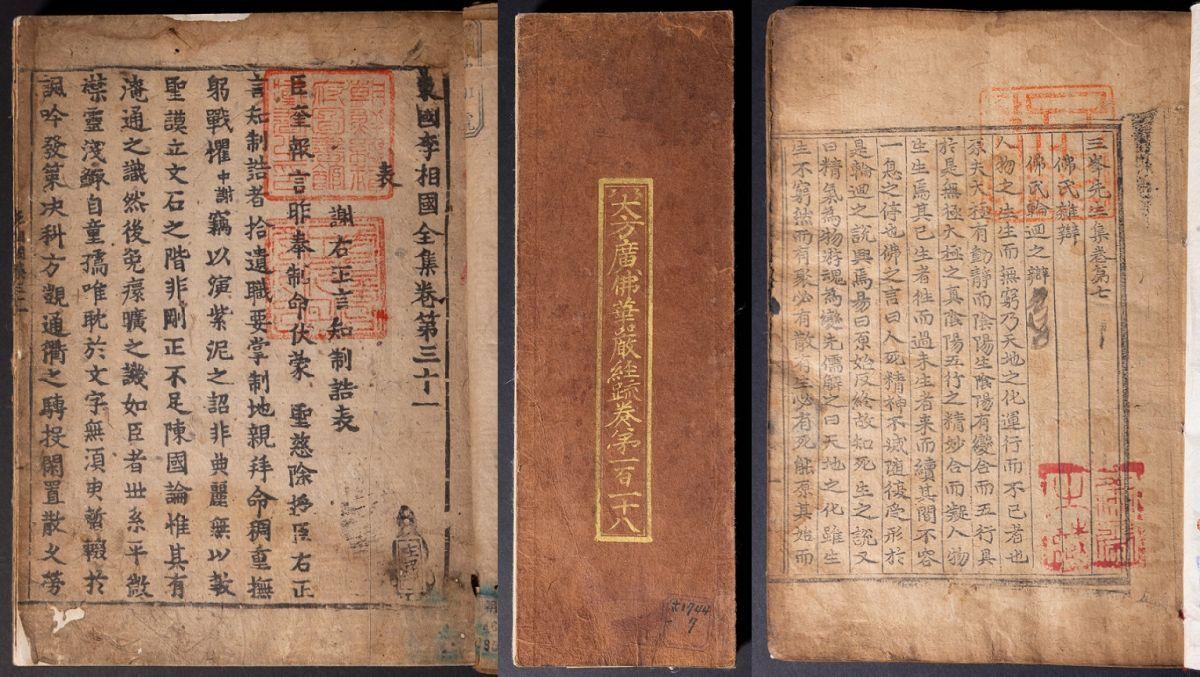 東國李相國全集卷第三十一
表
謝右正言知制誥表
臣奎報言昨奉制命伏蒙 聖慈除授臣右正
言知制誥者拾遺職要掌制地親拜命稠重撫
躬戰懼中謝竊以演紫泥之詔非典麗無以敷
聖謨立文石之階非剛正不足陳國論惟其有
淹通之識然後免瘝曠之譏如臣者世系平微
自童孺唯耽於文字無須臾暫輟於
諷吟發策決科方覬通衢之騁投閑置散久勞
大方廣佛華嚴經䟽卷第一百二十八
1744
7
三峯先生集卷第七
佛氏雜辯
佛氏輪迴之辯
人物之生生而無窮乃天地之化運行而不已者也
原夫太極有動静而陰陽生陰陽有變合而五行具
於是無極太極之真陰陽五行之精妙合而凝人物
生生焉其已生者往而過未生者来而續其間不容
一息之停也佛之言曰人死精神不滅随復受形於
是輪迴之說興焉易曰原始反終故知死生之說又
曰精氣為物游魂為變先儒解之曰天地之化雖生
生不窮然而有聚必有散有生必有死能原其始而